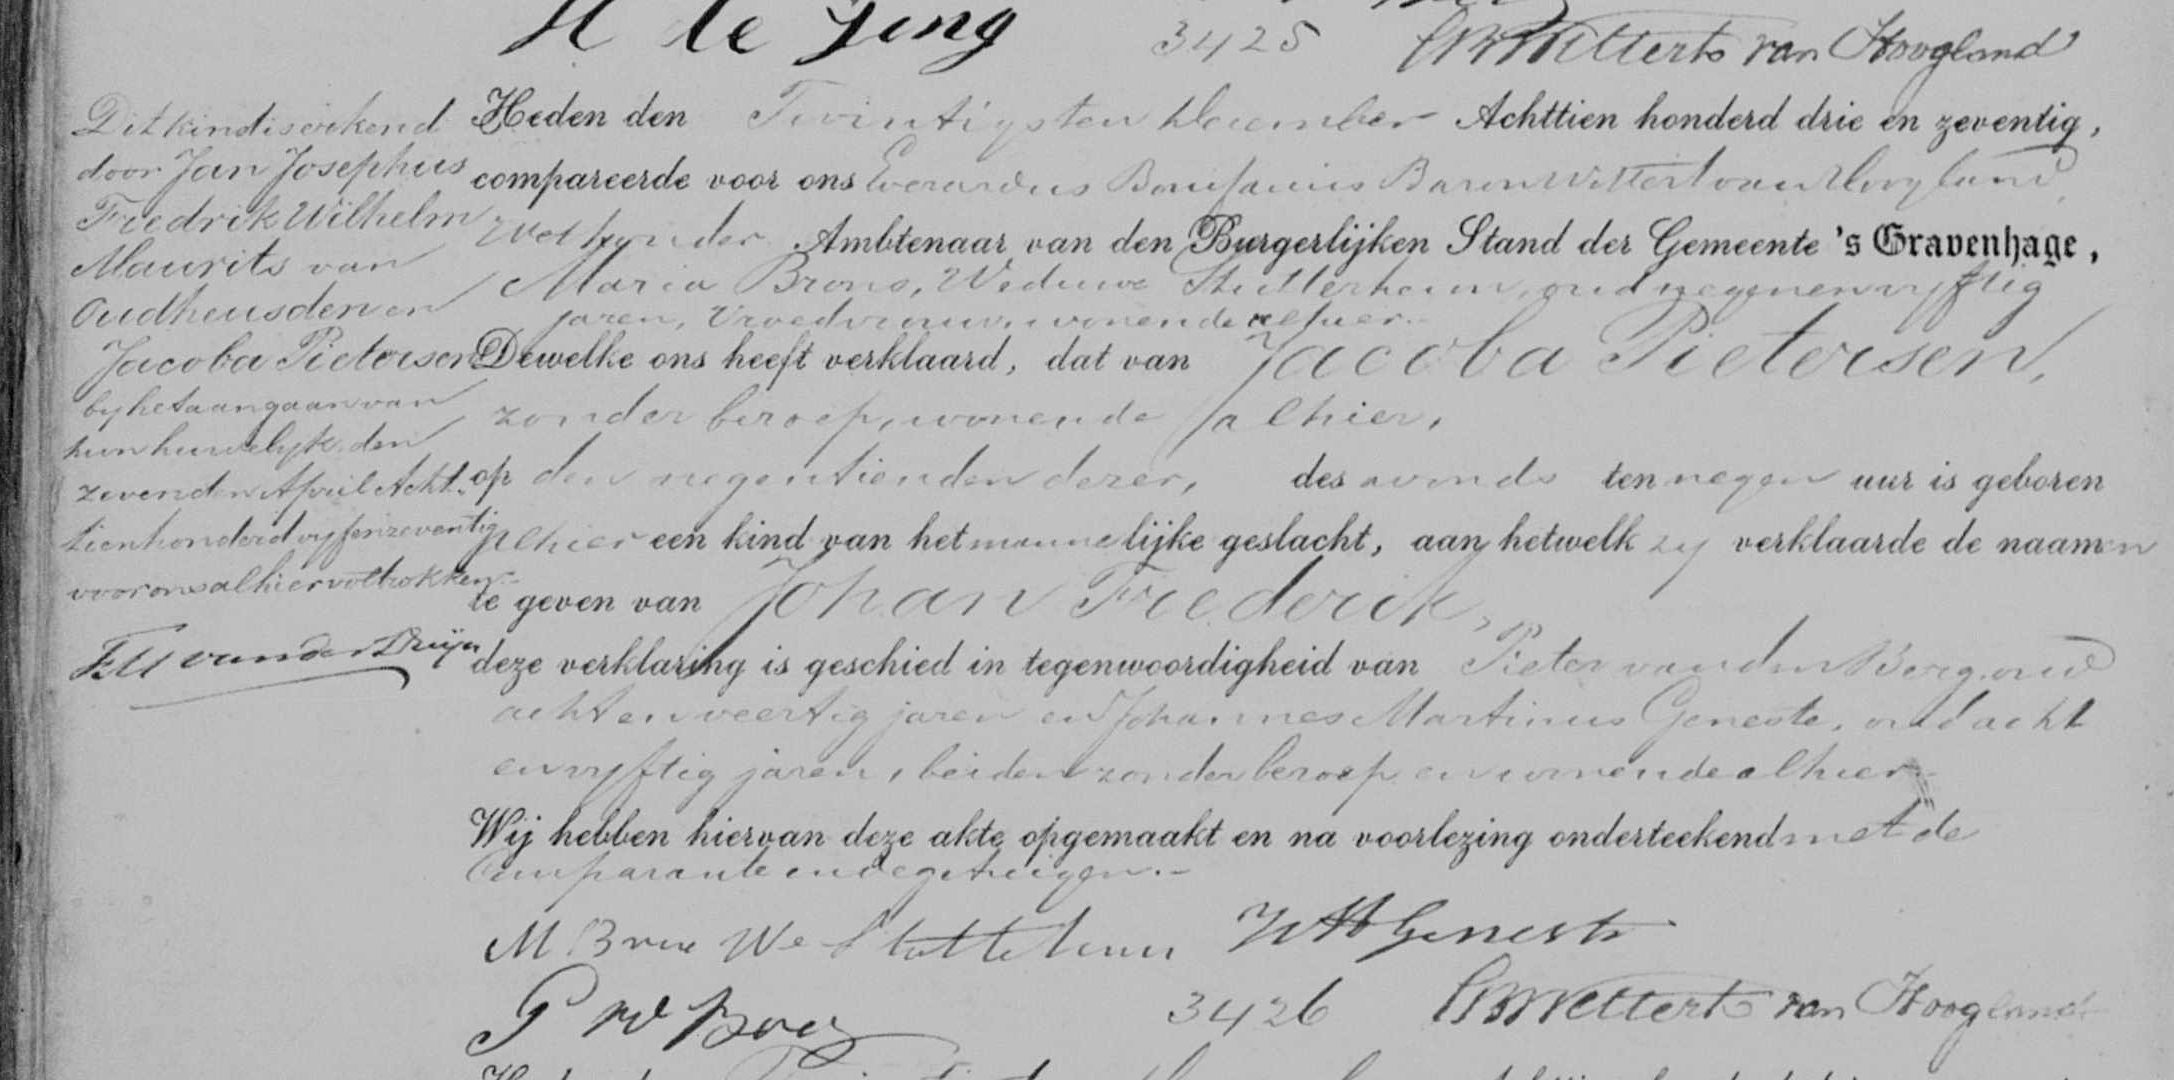 H de Jong 3425 EBFWittert van Hoogland
Dit kind is erkend
door Jan Josephus
Fredrik Wilhelm
Maurits van
Oudheusden en
Jacoba Pietersen
by het aangaan van
hun huwelyk den
zevenden April Acht-
tienhonderd vyf en zeventig
voor ons alhier voltrokken.-
Heden den Twintigsten December Achttien honderd drie en zeventig,
compareerde voor ons Everardus Bonifacius Baron Wittert van Hoogland,
Wethouder Ambtenaar van den Burgerlijken Stand der Gemeente 's Gravenhage,
Maria Brons, Weduwe Stutterheim, oud negenenvyftig
jaren, Vroedvrouw, wonende alhier.-
Dewelke ons heeft verklaard, dat van Jacoba Pietersen,
zonder beroep, wonende alhier,
op den negentienden dezer, des avonds ten negen uur is geboren
alhier een kind van het mannelijke geslacht, aan hetwelk zy verklaarde de naamen
te geven van Johan Frederik,
deze verklaring is geschied in tegenwoordigheid van Pieter van den Berg, oud
achtenveertig jaren en Johannes Martinus Geneste, oud acht
envyftig jaren, beiden zonder beroep en wonende alhier.-
Wij hebben hiervan deze akte opgemaakt en na voorlezing onderteekend met de
Comparante en de getuigen.-
M Brons We Stutterheim Geneste
P vd Berg 3426 EBFWittert van Hoogland